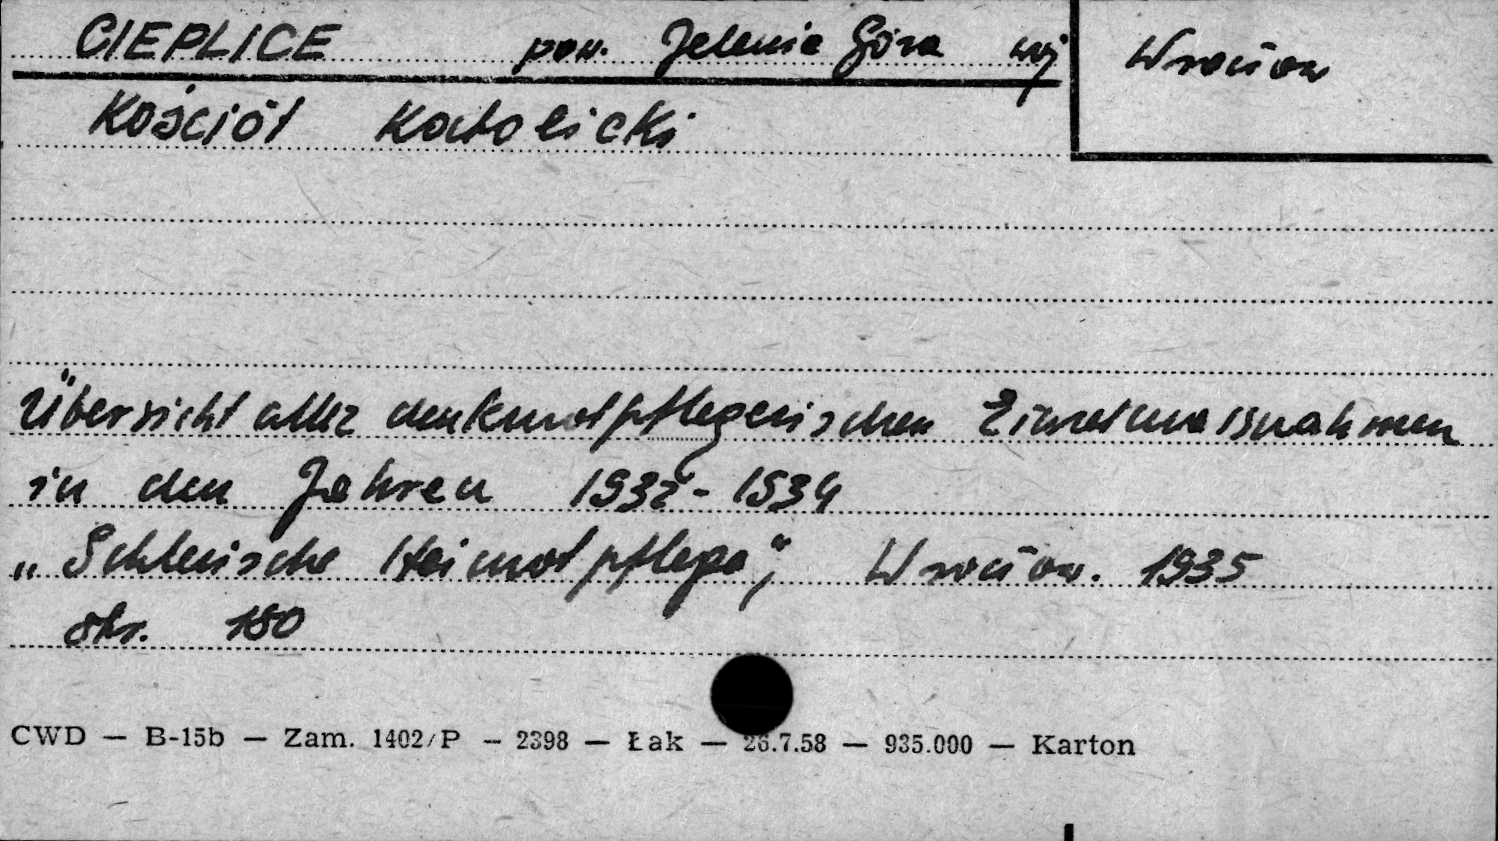 CIEPLICE pow. Jelenia Góra woj Wrocław
Kościół Katolicki
Übersicht aller denkmalpflegerischen Einzelmassnahmen
in den Jahren 1932-1934
„Schlesische Heimatpflege", Wrocław. 1935
str. 180
CWD — B-15b — Zam. 1402/P — 2398 — Łak — 26.7.58 — 935.000 — Karton